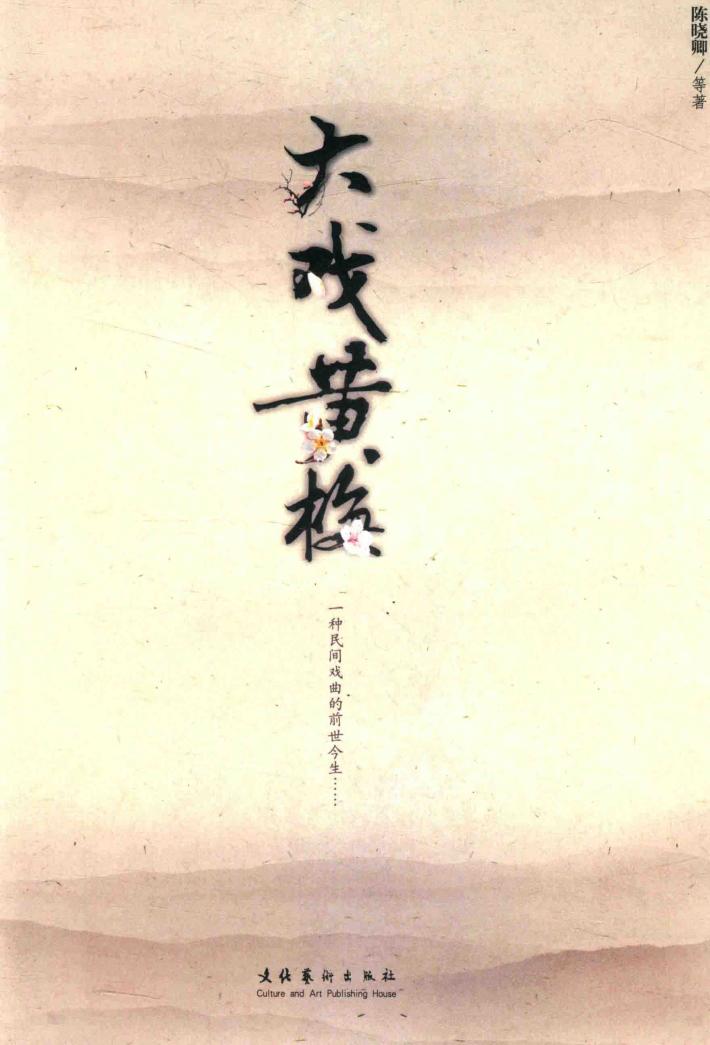 陈晓卿/等著
大戏黄梅
一种民间戏曲的前世今生……
文化艺术出版社
Culture and Art Publishing House